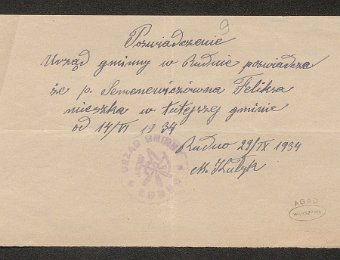 9
Poświadczenie
Urząd gminny w Radnie poświadcza
że p. Semenewiczówna Feliksa
mieszka w tutejszej gminie
od 14/VI 1934
Radno 29/IX 1934
URZĄD GMINNY
AGAD
WARSZAWA